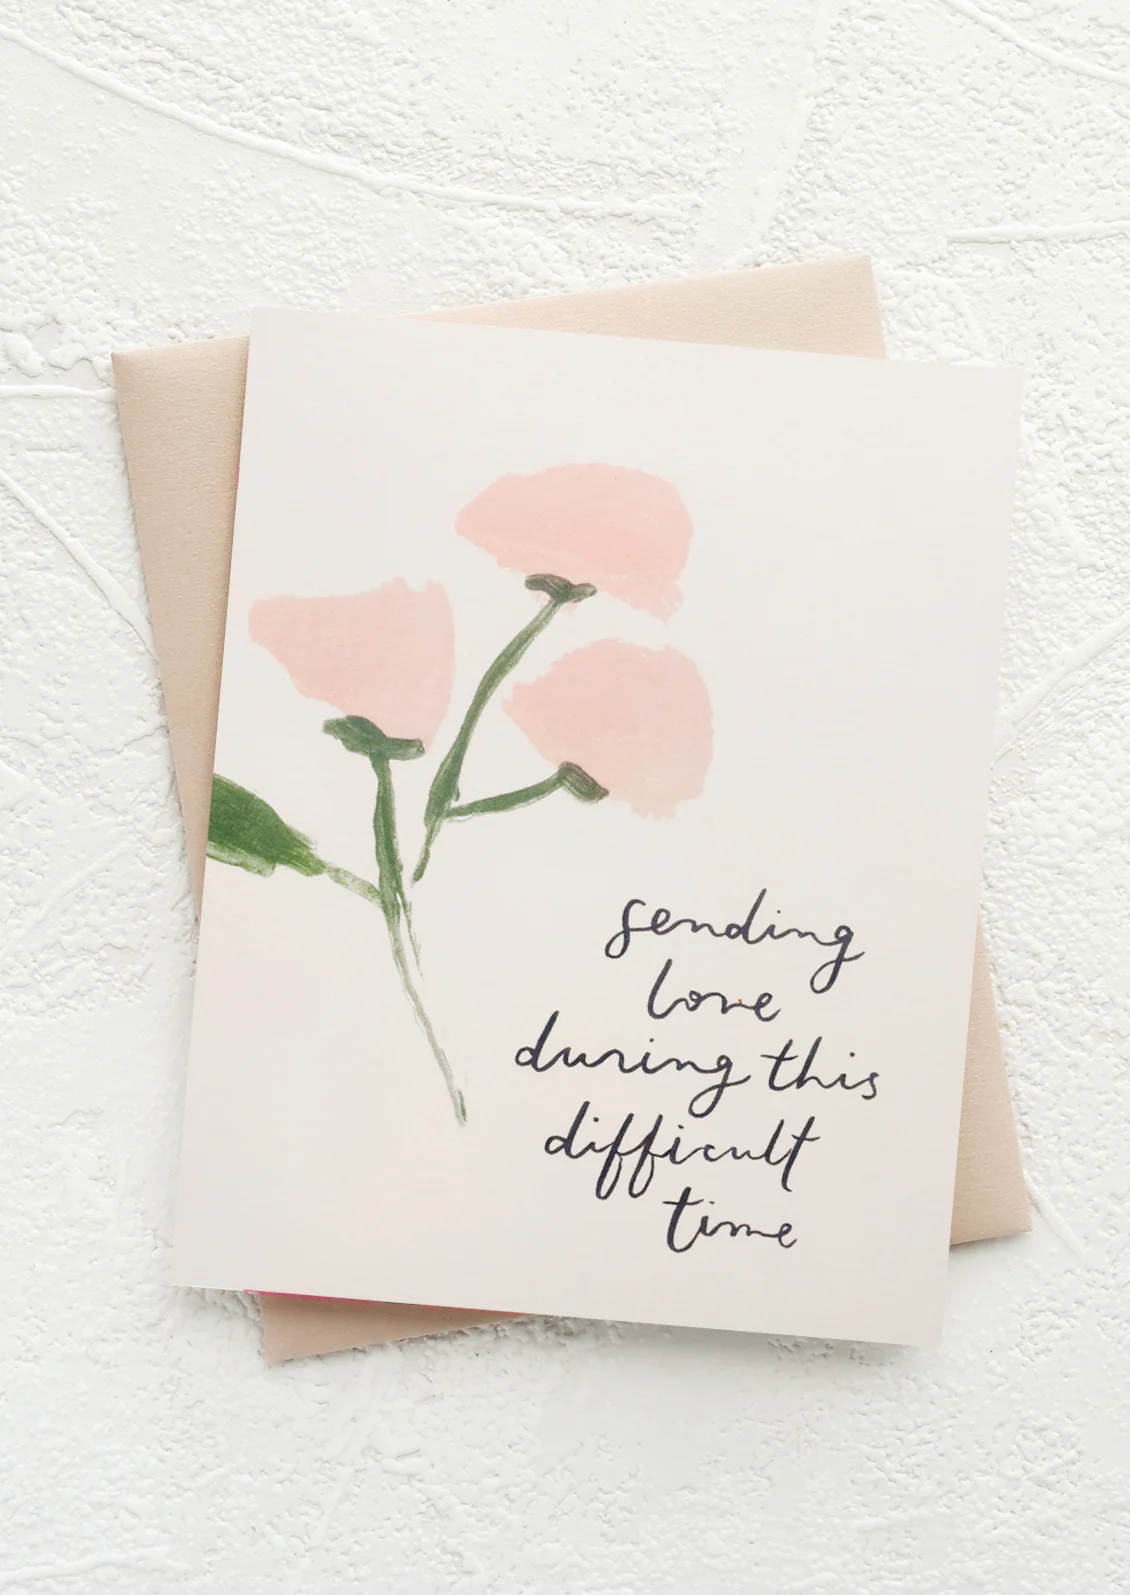 sending
love
during this
difficult
time